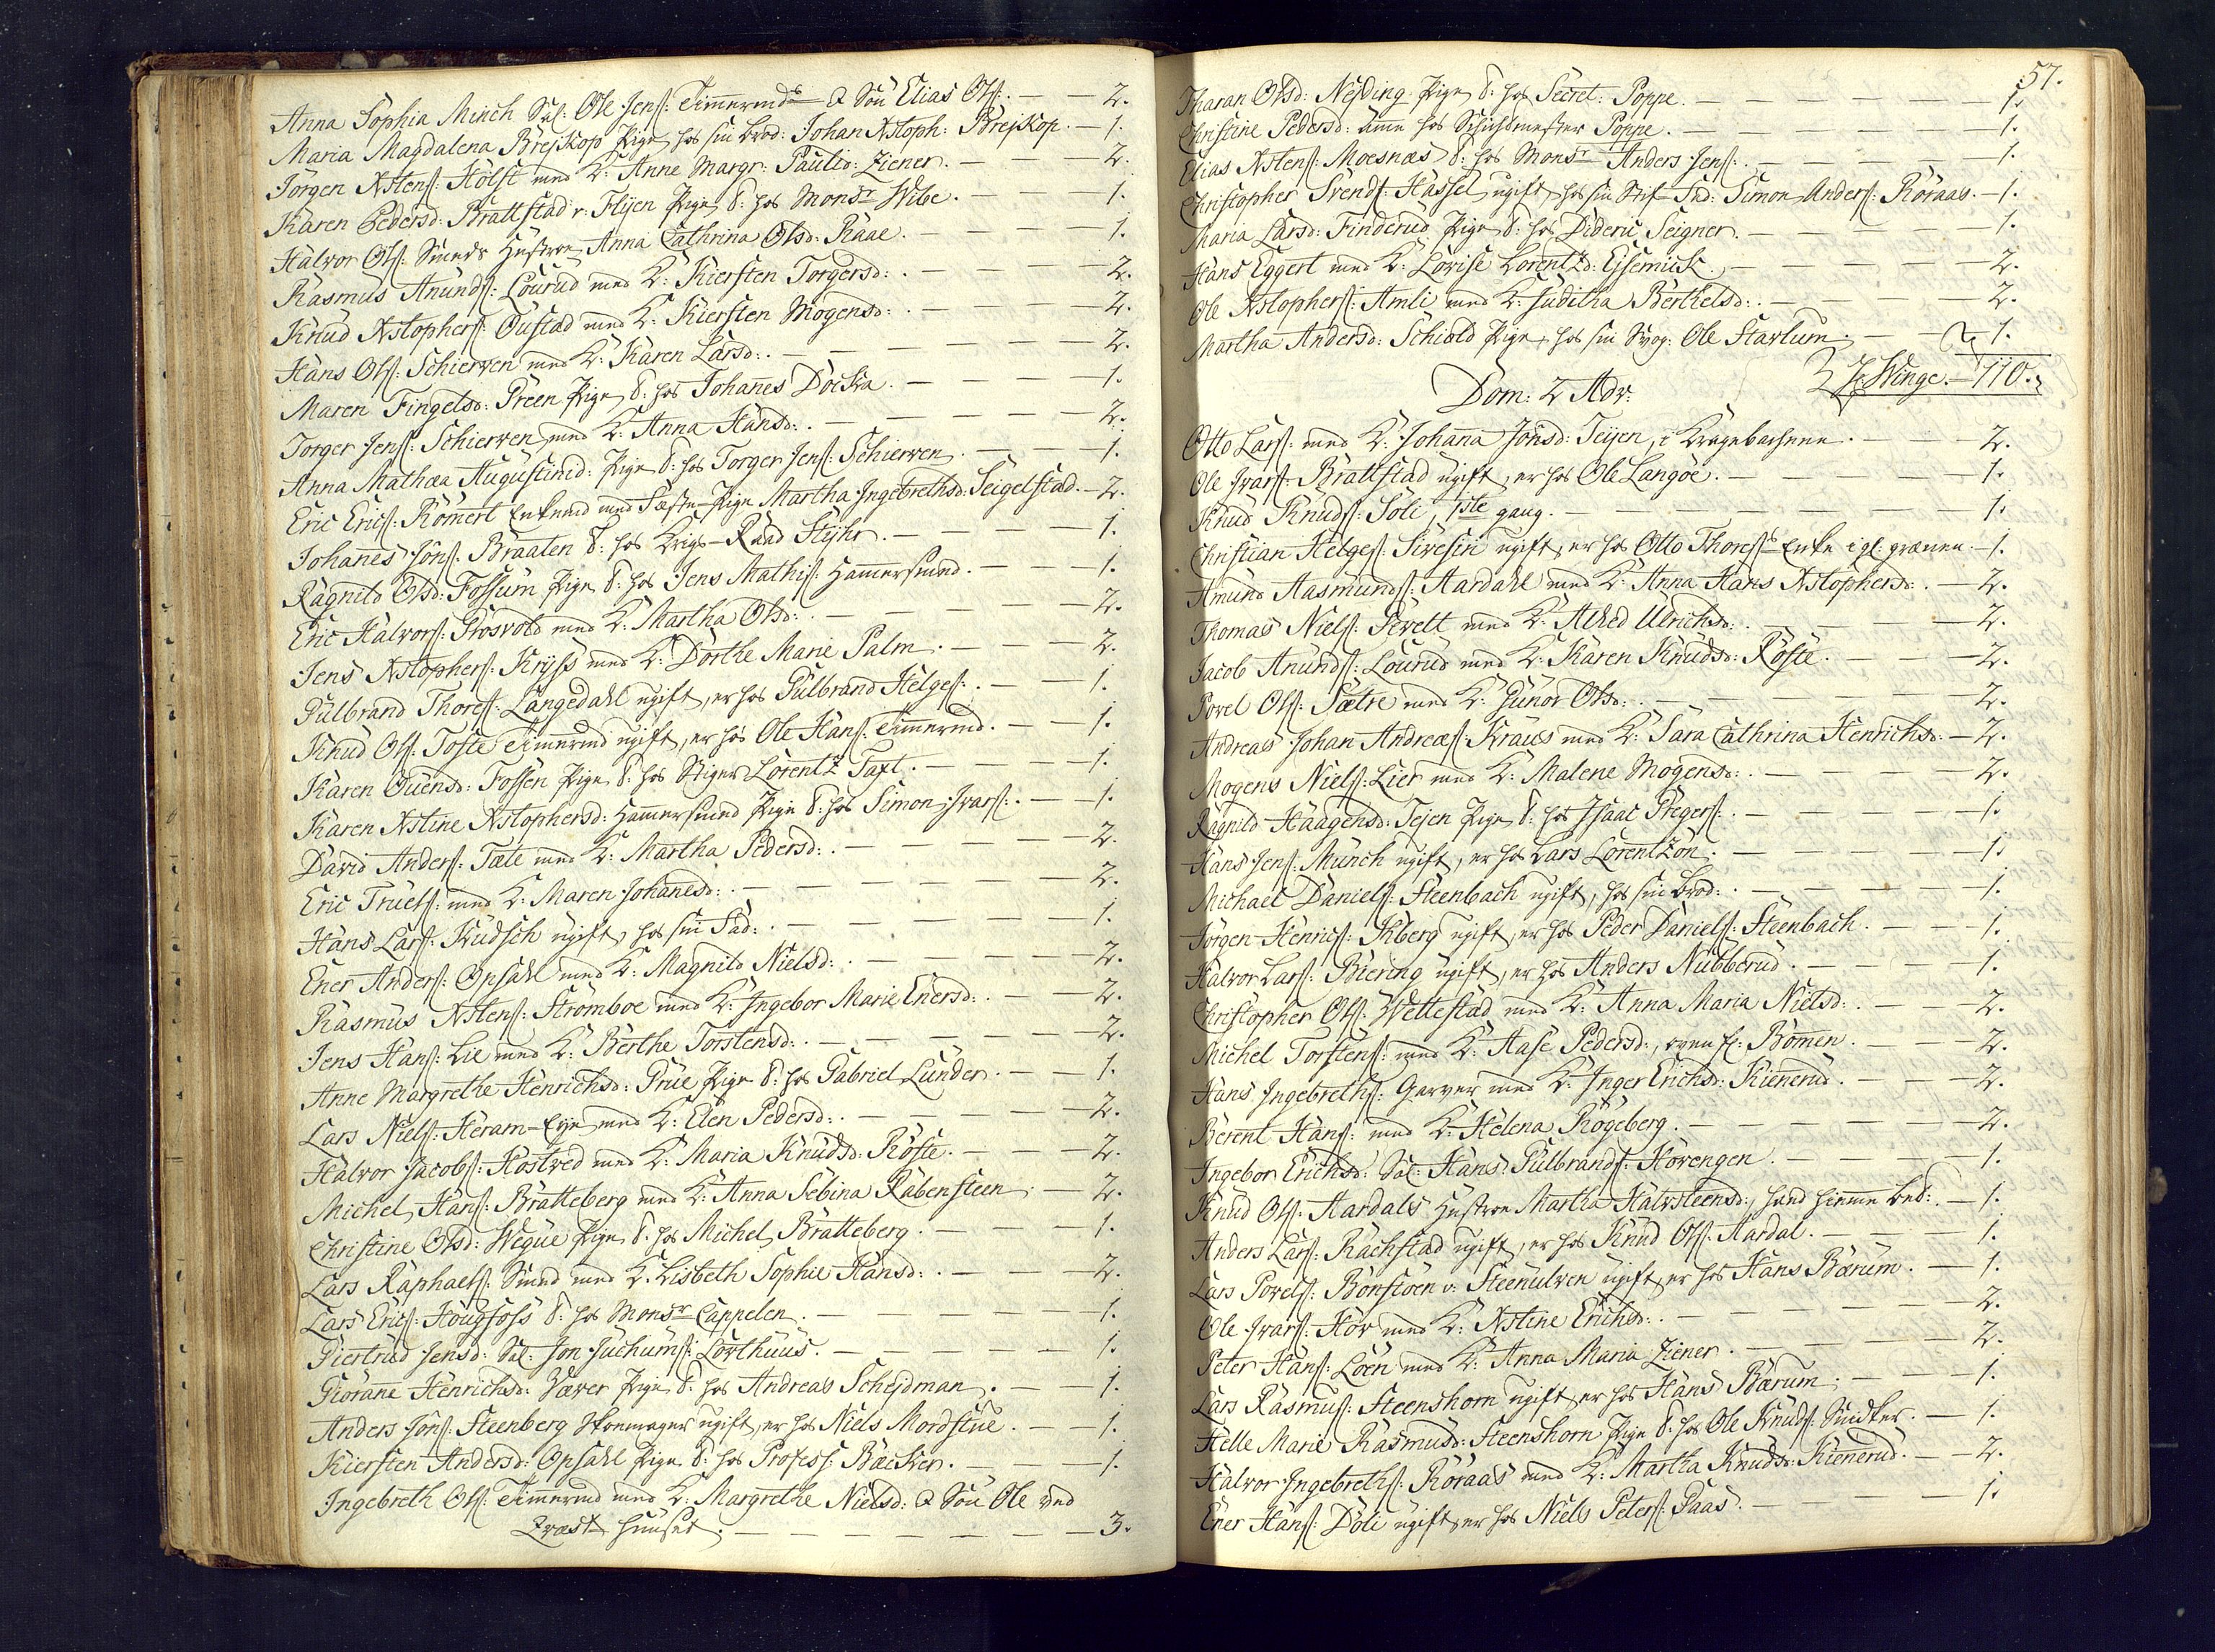 Anna Sophia Minch Sal: Ole Jens: Timermds & Sön Elias Ols:. — — 2.
Maria Magdalena Brejskop Pige, hos sin brod: Johan Xstoph: Brejskop. — 1.
Jörgen Xstens: Hölst med K: Anne Margr: Paulid: Ziener. — — 2.
Karen Pedersd: Brattstad v: Flijen Pige, t: hos Monsr Wibe. — — 1.
Halvor Ols: Smeds Hustroe Anna Cathrina Olsd: Raae. — — 1.
Rasmus Anunds: Lourud med K: Kiersten Torgersd:. — — 2.
Knud Xstophers: Oustad med K: Kiersten Mogensd:. — — 2.
Hans Ols: Schierven med K: Karen Larsd:. — — 2.
Maren Fingelsd: Preen Pige, t: hos Johanes Döcka. — — 1.
Torger Jens: Schierven med K: Anna Hansd:. — — 2.
Anna Mathæa Augustinid: Pige t: hos Torger Jens: Schierven. — — 1.
Eric Erics: Römert Enkemd med Fæste-Pige Martha Ingebrethsd: Seigelstad. — 2.
Johanes Jöns: Braaten t: hos Krigs-Raad Stijhr. — — 1.
Ragnild Olsd: Fossum Pige t: hos Jens Mathis: Hamersmed. — — 1.
Eric Halvors: Prosvold med K: Martha Olsd:. — — 2.
Jens Xstophers: Kryss med K: Dorthe Marie Palm. — — 2.
Gulbrand Thores: Langedahl ugift, er hos Gulbrand Helges:. — — 1.
Knud Ols: Tofte Timermd ugift, er hos Ole Hans: Timermd. — — 1.
Karen Ouensd: Fossen Pige t: hos Stiger Lorentz Taxt. — — 1.
Karen Xstine Xstophersd: Hamersmed Pige t: hos Simon Ivars:. — 1.
David Anders: Tæte med K: Martha Pedersd:. — — 2.
Eric Truels: med K: Maren Johanesd:. — — 2.
Hans Lars: Kudsch ugift, hos sin Fad:. — — 1.
Ener Anders: Opsahl med K: Magnild Nielsd:. — — 2.
Rasmus Xstens: Stromboe med K: Ingebor Marie Enersd:. — — 2.
Jens Hans: Lie med K: Berthe Torstensd:. — — 2.
Anne Margrethe Henrichsd: Grüe Pige t: hos Gabriel Lunder. — — 1.
Lars Niels: Heram-Eye med K: Elen Pedersd:. — — 2.
Halvor Jacobs: Hostved med K: Maria Knudsd: Röste. — — 2.
Michel Hans: Bratteberg med K: Anna Sebina Rabensteen. — 2.
Christine Olsd: Wegüe Pige t: hos Michel Bratteberg. — — 1.
Lars Raphaels: Smed med K: Lisbeth Sophie Hansd:. — — 2.
Lars Erics: Hougfoss t: hos Monsr Cappelen. — — 1.
Giertrud Jensd: Sal: Jon Juchums: Lorthuus. — — 1.
Giörane Henrichsd: Væver Pige t: hos Andreas Schejdman. — 1.
Anders Jöns: Steenberg Skomager ugift, er hos Niels Mordstue. — 1.
Kiersten Andersd: Opsahl Pige t: hos Profess: Bæcker. — — 1.
Ingebreth Ols: Timermd med K: Margrethe Nielsd: & Sön Ole ved
Præste Huuset. — — 3.
57.
Tharan Olsd: Nesding Pige t: hos Secret: Poppe. — — 1.
Christine Pedersd: Ame hos Schichtmester Poppe. — — 1.
Elias Xstens: Moesnæs t: hos Monsr Anders Jens:. — — 1.
Christopher Svends: Hassel ugift, hos sin Stif-Fad: Simon Anders: Röraas. — 1.
Maria Larsd: Finderud Pige t: hos Dideric Seigner. — — 1.
Hans Eggert med K: Lovise Lorentzd: Ejsemück. — — 2.
Ole Xstophers: Amli med K: Juditha Berthelsd:. — — 2.
Martha Andersd: Schiold Pige, hos sin Svog: Ole Stavlum. — — 1.
Dom: 2 Adv: H: Winge. — 110.
Otto Lars: med K: Johana Jonsd: Teijen, i Kragebachene. — — 2.
Ole Ivars: Brattstad ugift, er hos Ole Langöe. — — 1.
Knud Knuds: Soli, 1ste gang. — — 1.
Christian Helges: Sivesin ugift, er hos Otto Thoress: Enke i gl: grænen. — 1.
Amund Aasmunds: Aardahl med K: Anna Hans Xstophersd:. — 2.
Thomas Niels: Sevelt med K: Alhed Ulrichsd:. — — 2.
Jacob Anunds: Lourud med K: Karen Knudsd: Röste. — — 2.
Povel Ols: Sætre med K: Gunor Olsd:. — — 2.
Andreas Johan Andreæs: Kraus med K: Sara Cathrina Henrichsd: — 2.
Mogens Niels: Lier med K: Malene Mogensd:. — — 2.
Ragnild Haagensd: Tejen Pige t: hos Isaac Pregers:. — — 1.
Hans Jens: Münch ugift, er hos Lars Lorentzon. — — 1.
Michael Daniels: Steenbach ugift, hos sin brod:. — — 1.
Jörgen Henrics: Kberg ugift, er hos Peder Daniels: Steenbach. — — 1.
Halvor Lars: Biering ugift, er hos Anders Nubberud. — — 1.
Christopher Ols: Wettestad med K: Anna Maria Nielsd:. — — 2.
Michel Torstens: med K: Aase Pedersd:, oven f: Bomen. — — 2.
Hans Ingebreths: Garver med K: Inger Erichsd: Kienerud. — — 2.
Berent Hans: med K: Helena Rögeberg. — — 2.
Ingebor Erichsd: Sal: Hans Gulbrands: Hovengen. — — 1.
Knud Ols: Aardals Hustroe Martha Halvsteensd:, hand hieme bet:. — 1.
Anders Lars: Rachstad ugift, er hos Knud Ols: Aardal. — — 1.
Lars Povels: Bonstöen v: Steenulven ugift, er hos Hans Bærum. — 1.
Ole Ivars: Hov med K: Xstine Erichsd:. — — 2.
Peter Hans: Loen med K: Anna Maria Ziener. — — 2.
Lars Rasmus: Steenshorn ugift, er hos Hans Bærum. — — 1.
Helle Marie Rasmusd: Steenshorn Pige t: hos Ole Knuds: Snidker. — 1.
Halvor Ingebreths: Röraas med K: Martha Knudsd: Kienerud. — 2.
Ener Hans: Doli ugift, er hos Niels Peters: Paas. — — 1.